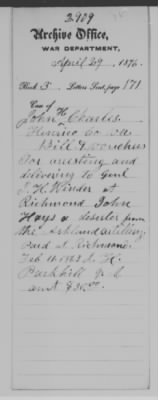 2909
Archive Office,
WAR DEPARTMENT,
April 29, 1876.
Book 3 Letters Sent, page 171.
Case of
John H Charles
Henrico Co Va
Bill & vouchers
For arresting and
delivering to Genl
J. H. Winder at
Richmond John
Hays a deserter from
the Ashland artillery
Paid at Richmond
Feb 1863
Parkhill
amt $30.00